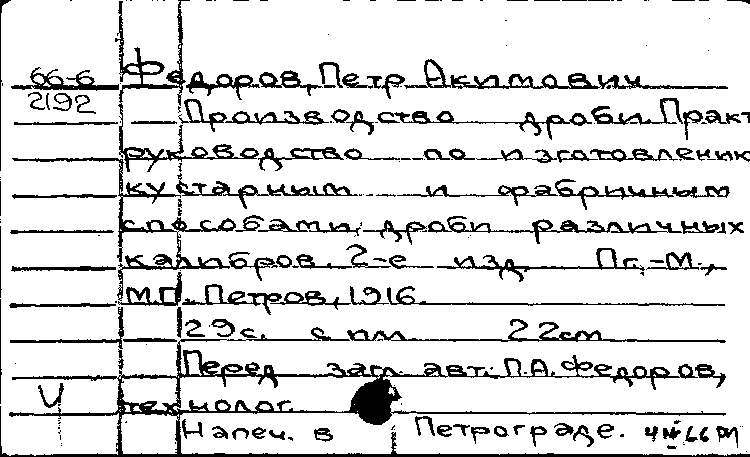 66-6
2192
Федоров, Петр Акимович
Производство дроби. Практ
руководство по изготовлению
кустарным и фабричным
способами дроби различных
калибров. 2-е изд. Пг.-М.,
М.П. Петров, 1916.
29с. с пл 22см
Перед загл. авт.: П.А. Федоров,
технолог.
Ч
Напеч. в Петрограде.